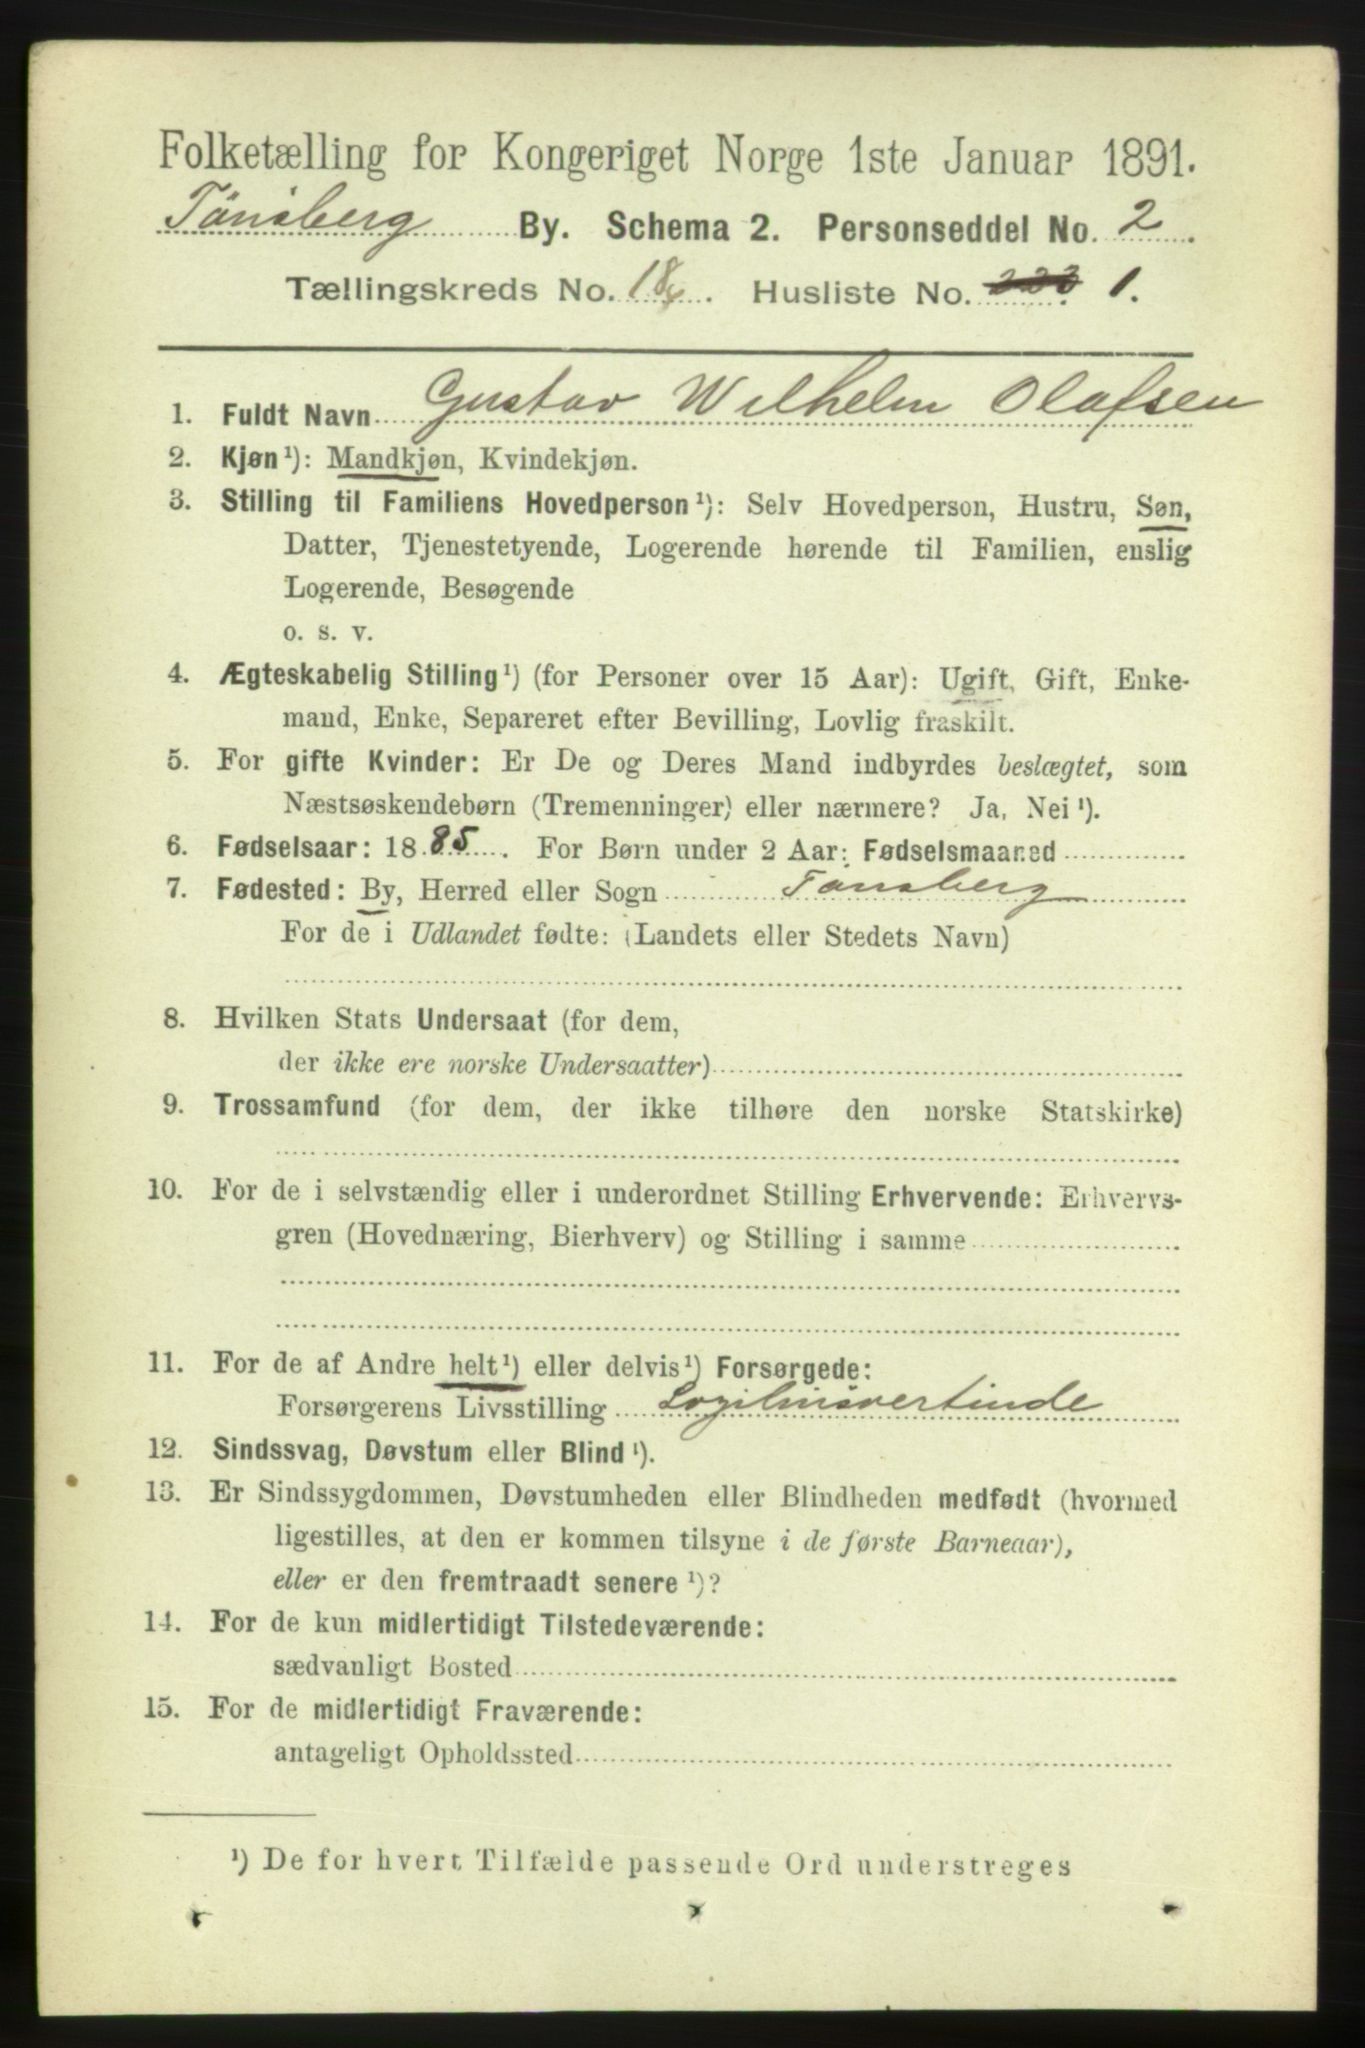 Folketælling for Kongeriget Norge 1ste Januar 1891.
Tönsberg By. Schema 2. Personseddel No. 2
Tællingskreds No. 18 . Husliste No. 222 1.
1. Fuldt Navn Gustav Wilhelm Olafsen
2. Kjøn ¹): Mandkjøn, Kvindekjøn.
3. Stilling til Familiens Hovedperson ¹): Selv Hovedperson, Hustru, Søn,
Datter, Tjenestetyende, Logerende hørende til Familien, enslig
Logerende, Besøgende
o. s. v.
4. Ægteskabelig Stilling ¹) (for Personer over 15 Aar): Ugift, Gift, Enke-
mand, Enke, Separeret efter Bevilling, Lovlig fraskilt.
5. For gifte Kvinder: Er De og Deres Mand indbyrdes beslægtet, som
Næstsøskendebørn (Tremenninger) eller nærmere? Ja, Nei ¹).
6. Fødselsaar: 1885. For Børn under 2 Aar: Fødselsmaaned
7. Fødested: By, Herred eller Sogn Tönsberg
For de i Udlandet fødte: (Landets eller Stedets Navn)
8. Hvilken Stats Undersaat (for dem,
der ikke ere norske Undersaatter)
9. Trossamfund (for dem, der ikke tilhøre den norske Statskirke)
10. For de i selvstændig eller i underordnet Stilling Erhvervende: Erhvervs-
gren (Hovednæring, Bierhverv) og Stilling i samme
11. For de af Andre helt ¹) eller delvis ¹) Forsørgede:
Forsørgerens Livsstilling Logihusvertinde
12. Sindssvag, Døvstum eller Blind ¹).
13. Er Sindssygdommen, Døvstumheden eller Blindheden medfødt (hvormed
ligestilles, at den er kommen tilsyne i de første Barneaar),
eller er den fremtraadt senere ¹)?
14. For de kun midlertidigt Tilstedeværende:
sædvanligt Bosted
15. For de midlertidigt Fraværende:
antageligt Opholdssted
¹) De for hvert Tilfælde passende Ord understreges